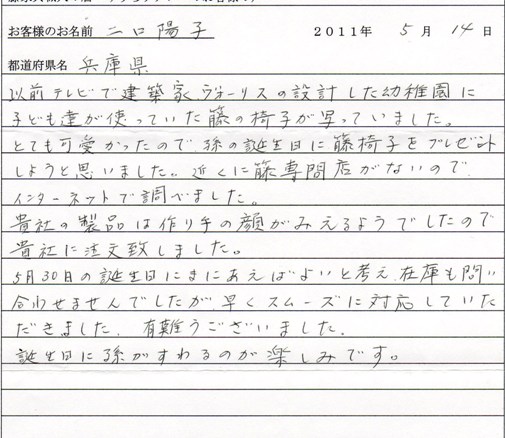 お客様のお名前 二口陽子 2011年 5月 14日
都道府県名 兵庫県
以前テレビで建築家ヴォーリスの設計した幼稚園に
子ども達が使っていた藤の椅子が写っていました。
とても可愛かったので、孫の誕生日に藤椅子をプレゼント
しようと思いました。近くに籐専門店がないので、
インターネットで調べました。
貴社の製品は作り手の顔がみえるようでしたので
貴社に注文致しました。
5月30日の誕生日にまにあえばよいと考え、在庫も問い
合わせませんでしたが、早くスムーズに対応していた
だきました。有難うございました。
誕生日に孫がすわるのが楽しみです。